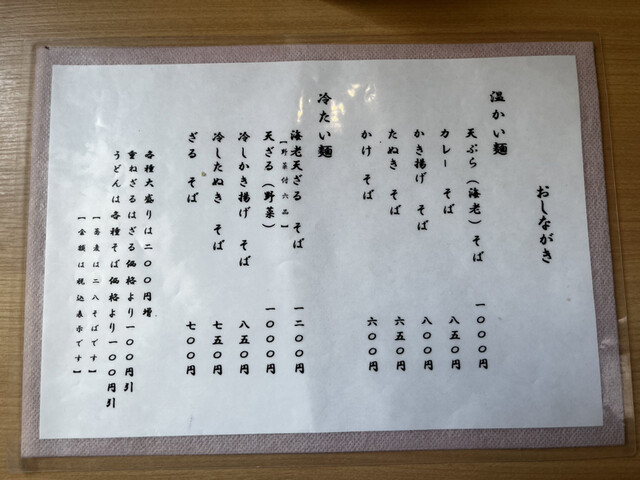 おしながき
温かい麺
天ぷら(海老)そば 一〇〇〇円
カレー そば 八五〇円
かき揚げ そば 八〇〇円
たぬき そば 六五〇円
かけ そば 六〇〇円
冷たい麺
海老天ざる そば 一二〇〇円
【野菜付六品】
天ざる(野菜) 一〇〇〇円
冷しかき揚げ そば 八五〇円
冷したぬき そば 七五〇円
ざる そば 七〇〇円
各種大盛りは二〇〇円増
重ねざるはざる価格より一〇〇円引
うどんは各種そば価格より一〇〇円引
【蕎麦は二八そばです】
【金額は税込表示です】